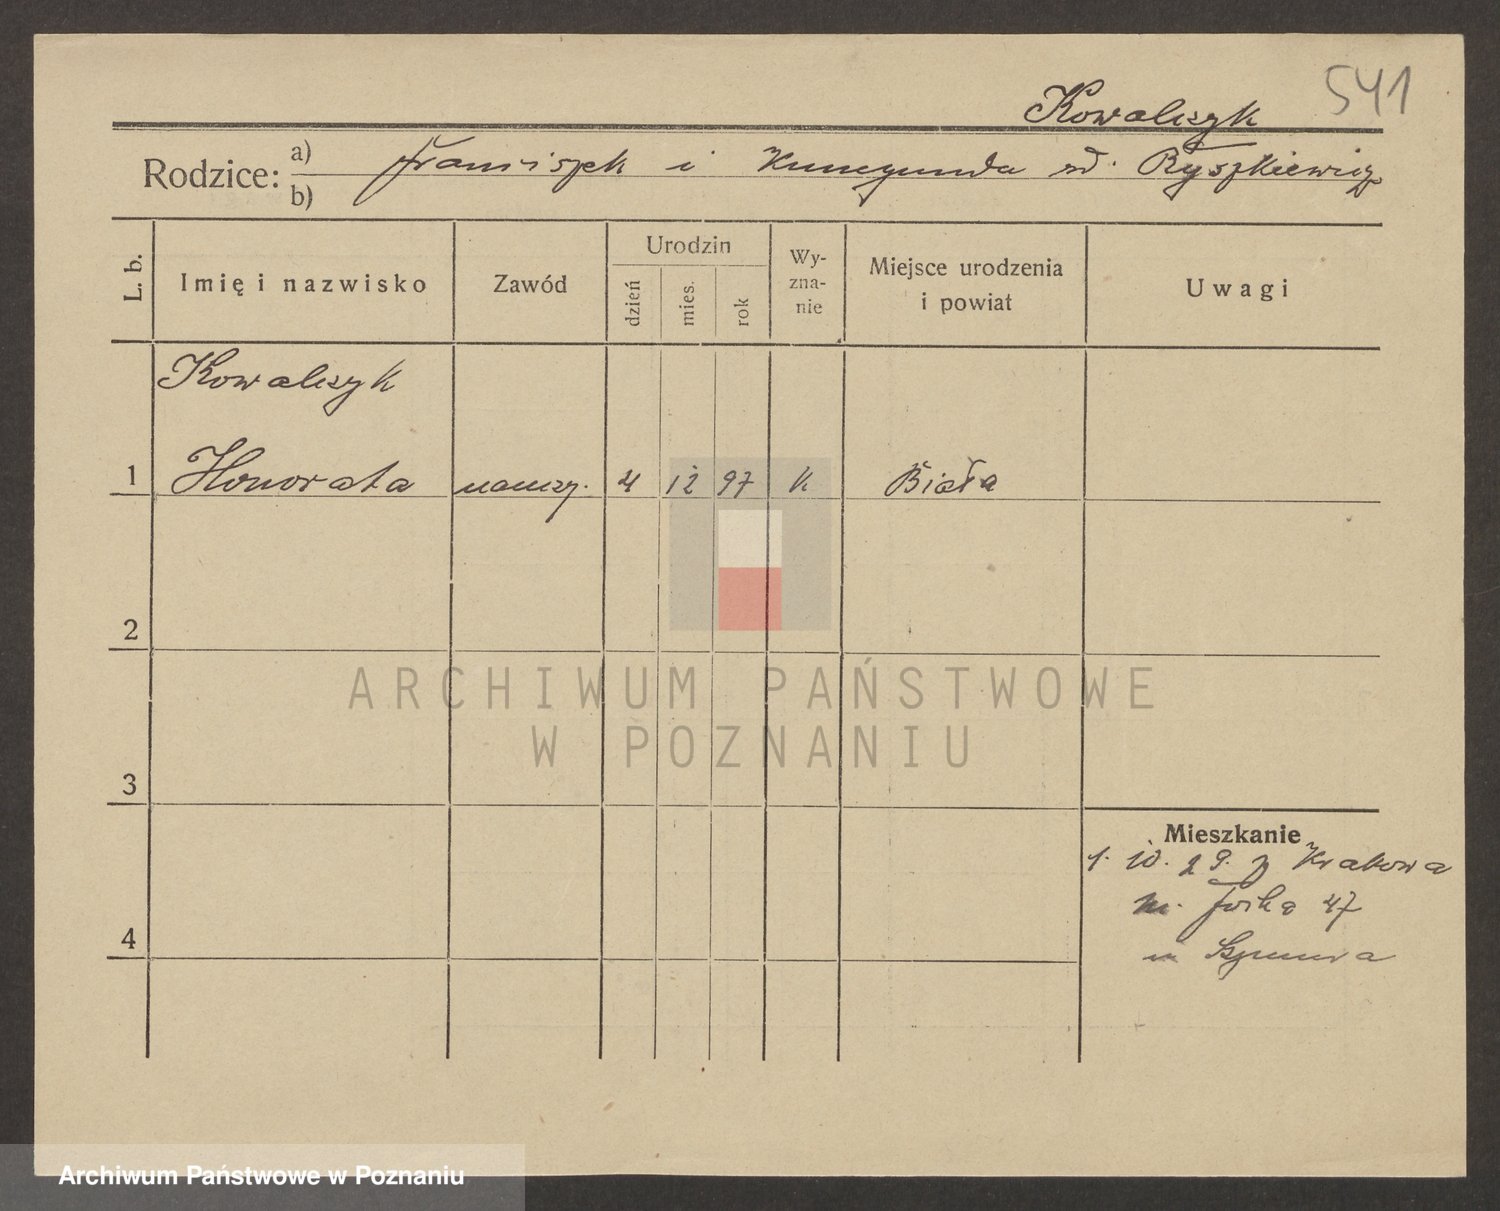 541
Kowalczyk
Rodzice: a) Franciszek i Kunegunda ur. Ryszkiewicz
b)
L. b.
Imię i nazwisko
Zawód
Urodzin
dzień
mies.
rok
Wy-
zna-
nie
Miejsce urodzenia
i powiat
Uwagi
Kowalczyk
1 Honorata naucz. 4 12 97 k Biała
2
3
4
Mieszkanie
1. 10. 29. z Krakowa
47
ARCHIWUM PAŃSTWOWE
W POZNANIU
Archiwum Państwowe w Poznaniu